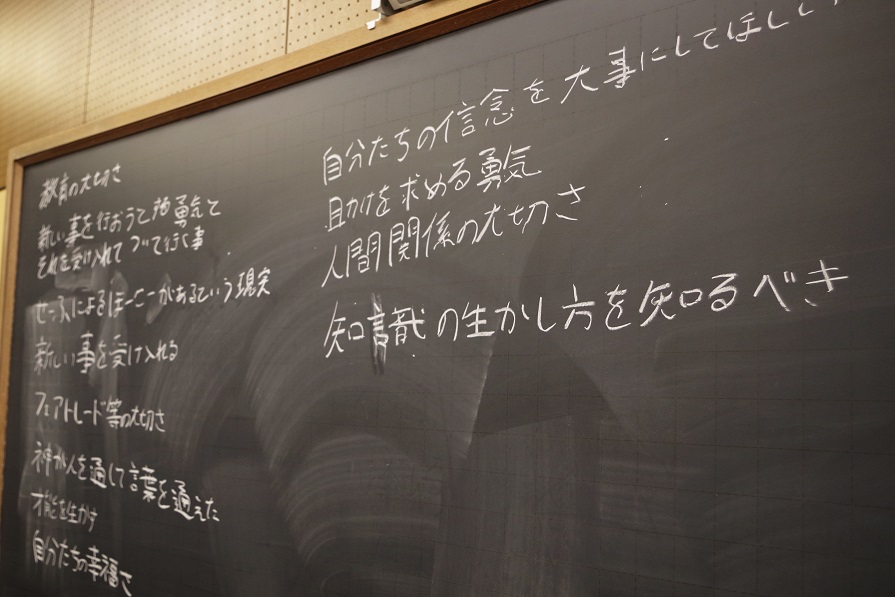 教育の大切さ
新しい事を行おうとする勇気と
それを受け入れてついて行く事
による があるという現実
新しい事を受け入れる
フェアトレード等の大切さ
神が人を通して言葉を
才能を生かす
自分たちの幸福さ
自分たちの信念を大事にしてほしい
助けを求める勇気
人間関係の大切さ
知識の生かし方を知るべき